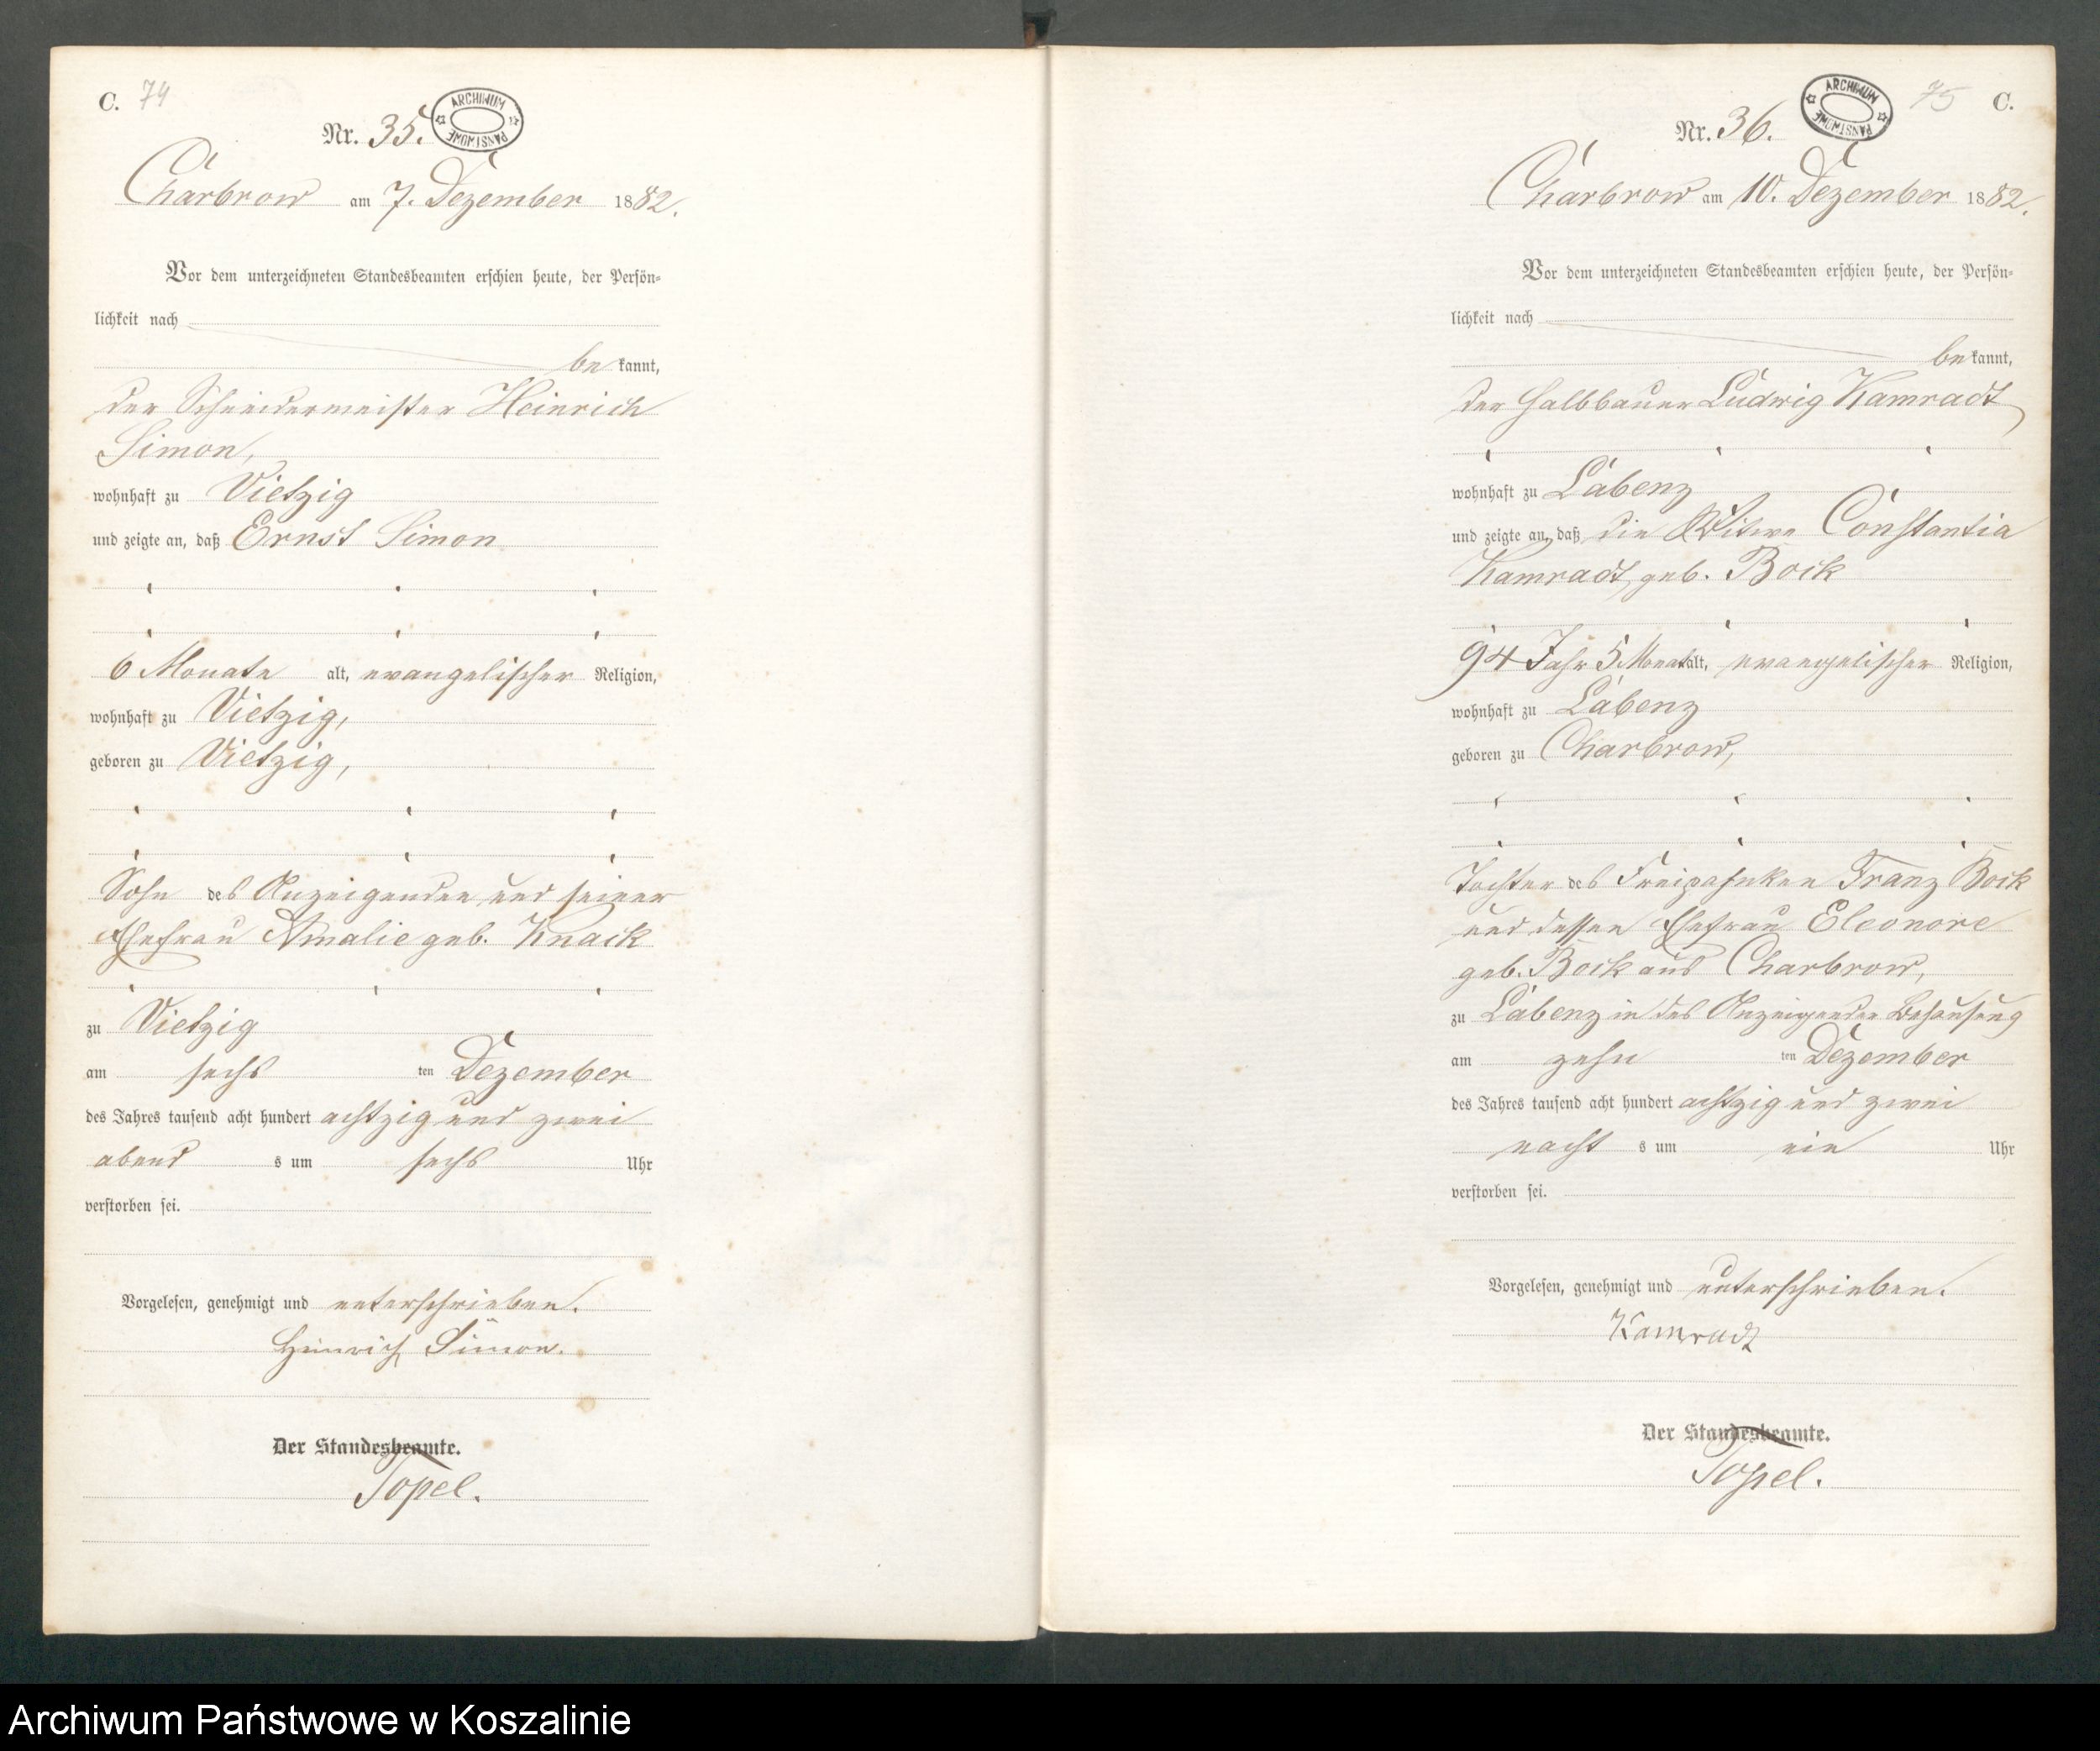 C. 74
Nr. 35.
ARCHIWUM PAŃSTWOWE
Charbrow am 7. Dezember 1882.
Vor dem unterzeichneten Standesbeamten erschien heute, der Persön-
lichkeit nach
be kannt,
der Schneidermeister Heinrich
Simon,
wohnhaft zu Vietzig
und zeigte an, daß Ernst Simon
6 Monate alt, evangelischer Religion,
wohnhaft zu Vietzig,
geboren zu Vietzig,
Sohn des Anzeigenden und seiner
Ehefrau Amalie geb. Knack
zu Vietzig
am sechs ten Dezember
des Jahres tausend acht hundert achtzig und zwei
abend s um sechs Uhr
verstorben sei.
Vorgelesen, genehmigt und unterschrieben.
Heinrich Simon.
Der Standesbeamte.
Topel.
75 C.
Nr. 36.
ARCHIWUM PAŃSTWOWE
Charbrow am 10. Dezember 1882.
Vor dem unterzeichneten Standesbeamten erschien heute, der Persön-
lichkeit nach
be kannt,
der Halbbauer Ludwig Kamradt
wohnhaft zu Labenz
und zeigte an, daß die Witwe Constantia
Kamradt, geb. Bock
94 Jahr 5 Monat alt, evangelischer Religion,
wohnhaft zu Labenz
geboren zu Charbrow,
Tochter des Franz Bock
und dessen Ehefrau Eleonore
geb. Bock aus Charbrow,
zu Labenz in des Anzeigenden Behausung
am zehn ten Dezember
des Jahres tausend acht hundert achtzig und zwei
nacht s um ein Uhr
verstorben sei.
Vorgelesen, genehmigt und unterschrieben.
Kamradt
Der Standesbeamte.
Topel.
Archiwum Państwowe w Koszalinie